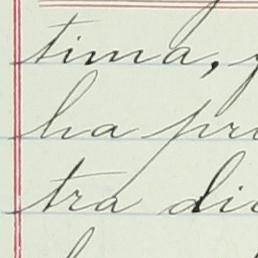 tima,
ha pr
tra di